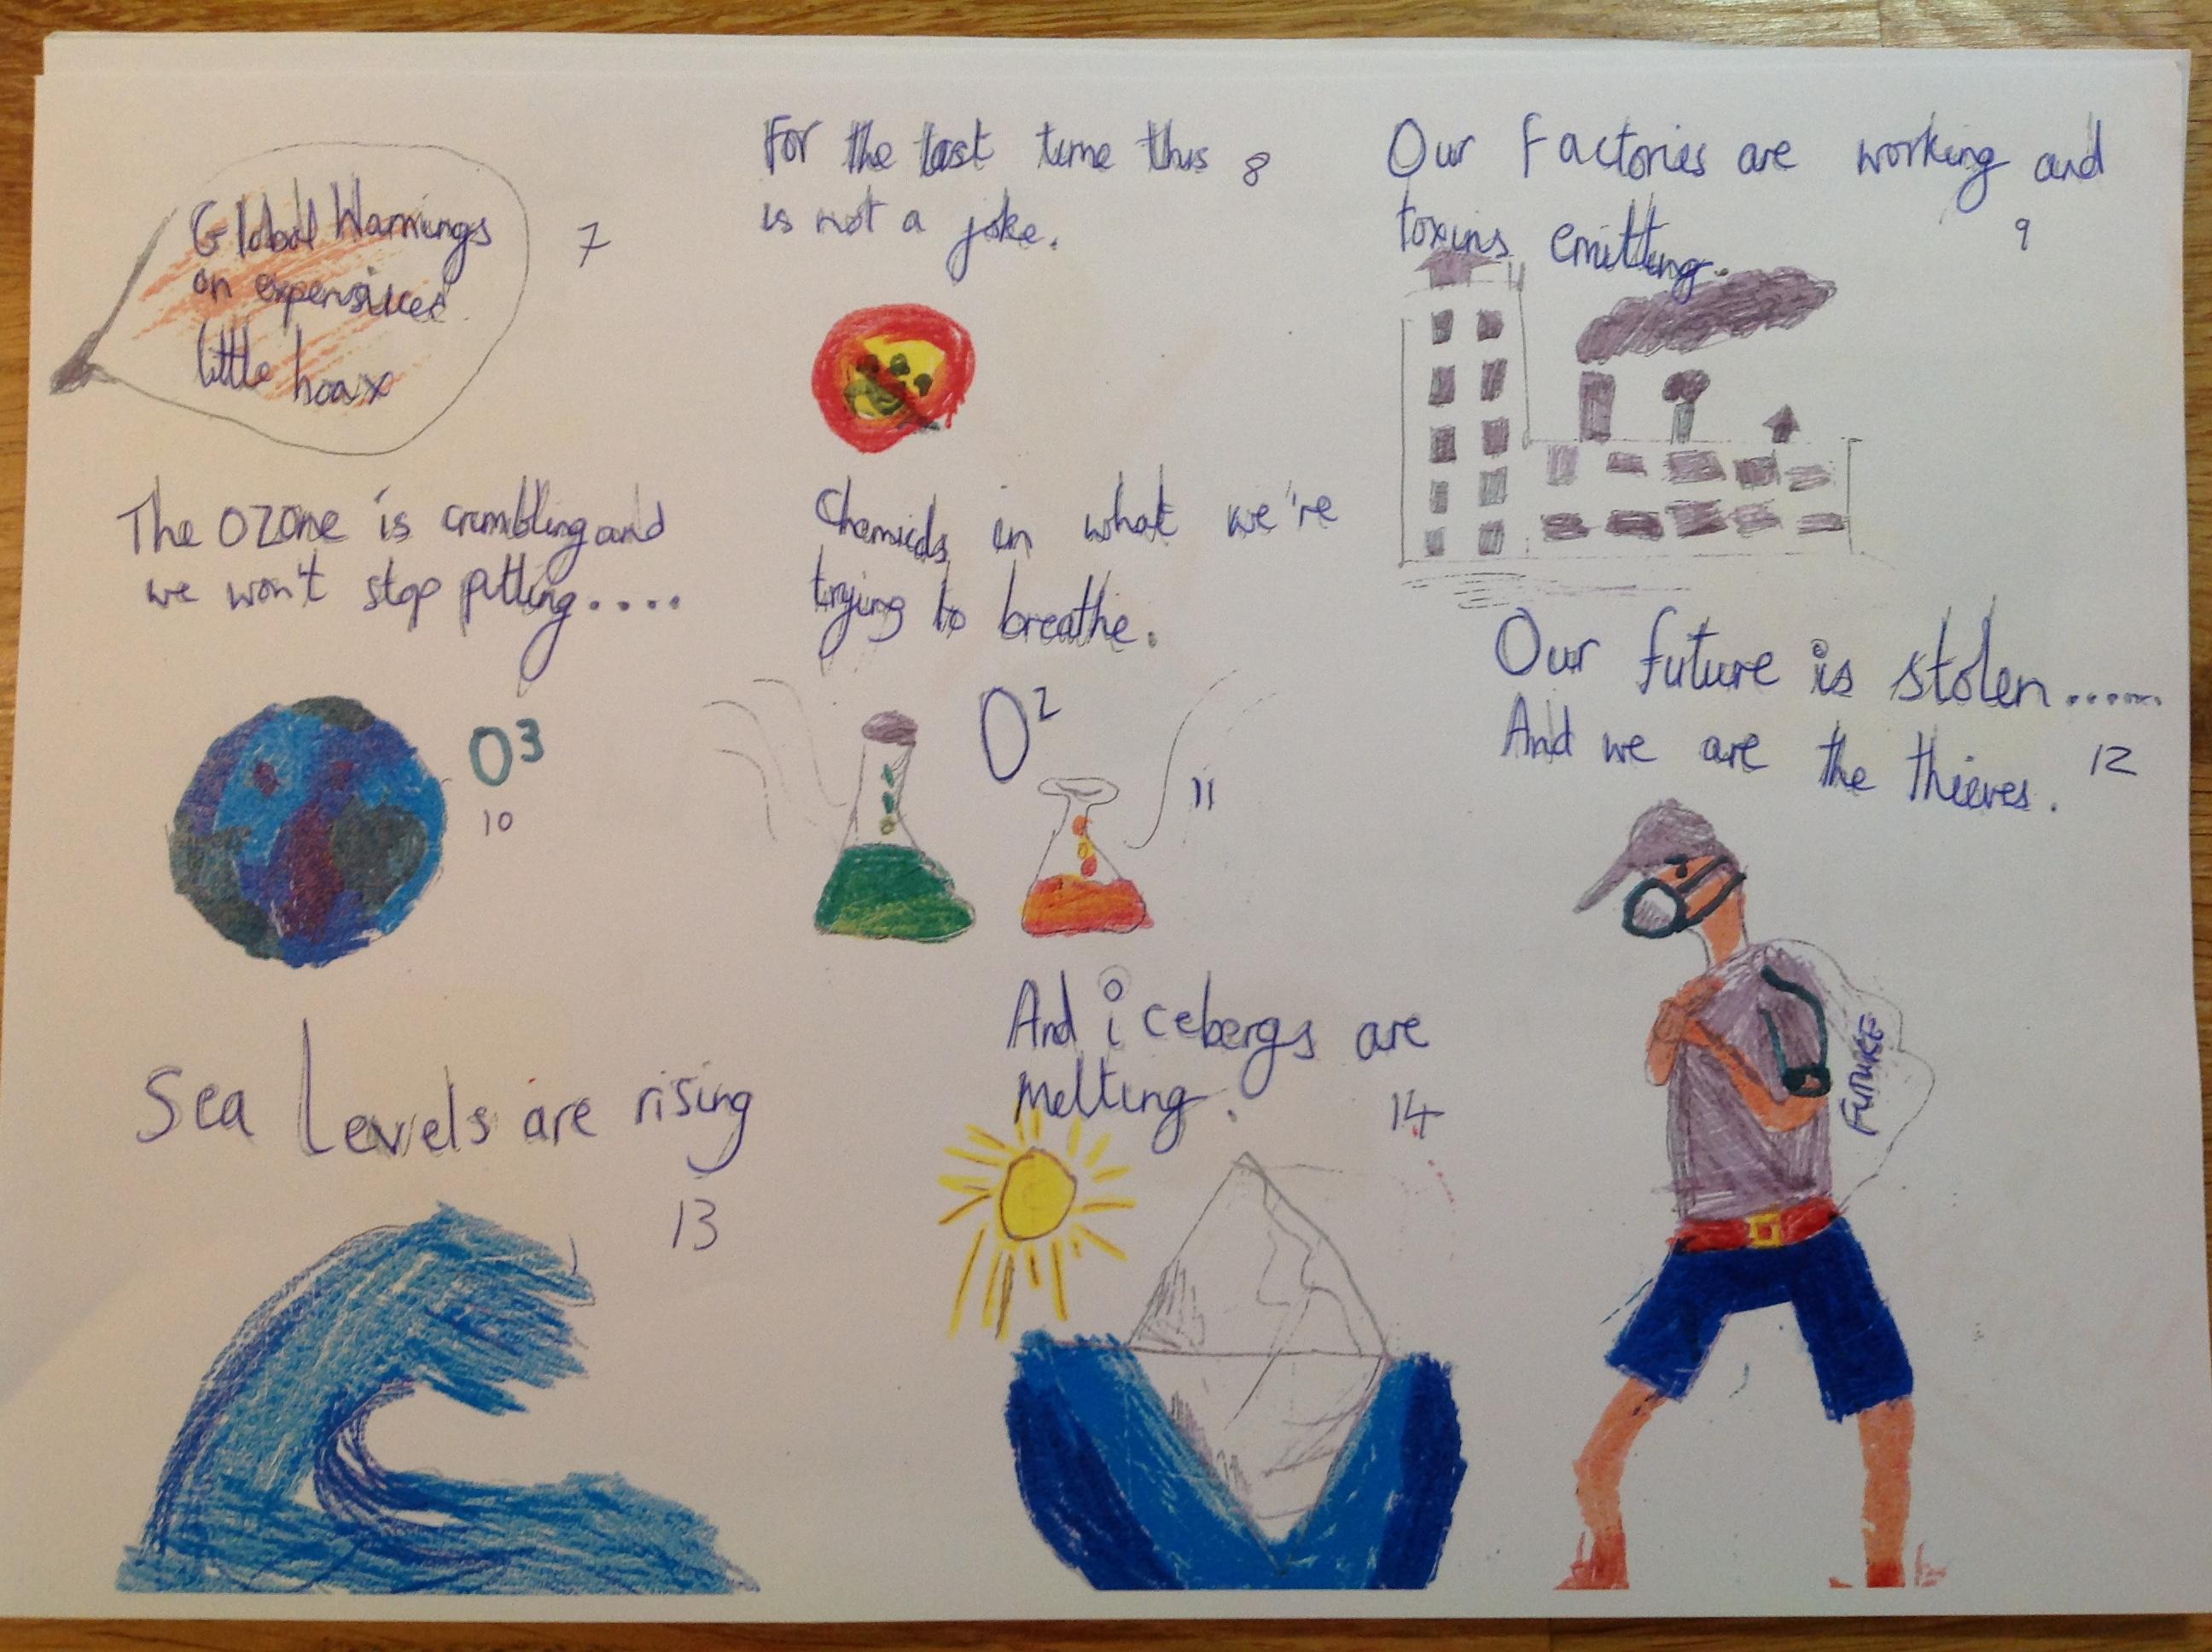 Global Warnings
an expensive
little hoax
7
For the last time this
is not a joke.
8
Our Factories are working and
toxins emitting.
9
The Ozone is crumbling and
we won't stop putting....
O3
10
Chemicals in what we're
trying to breathe.
O2
11
Our future is stolen......
And we are the thieves.
12
FUTURE
Sea levels are rising
13
And icebergs are
melting.
14